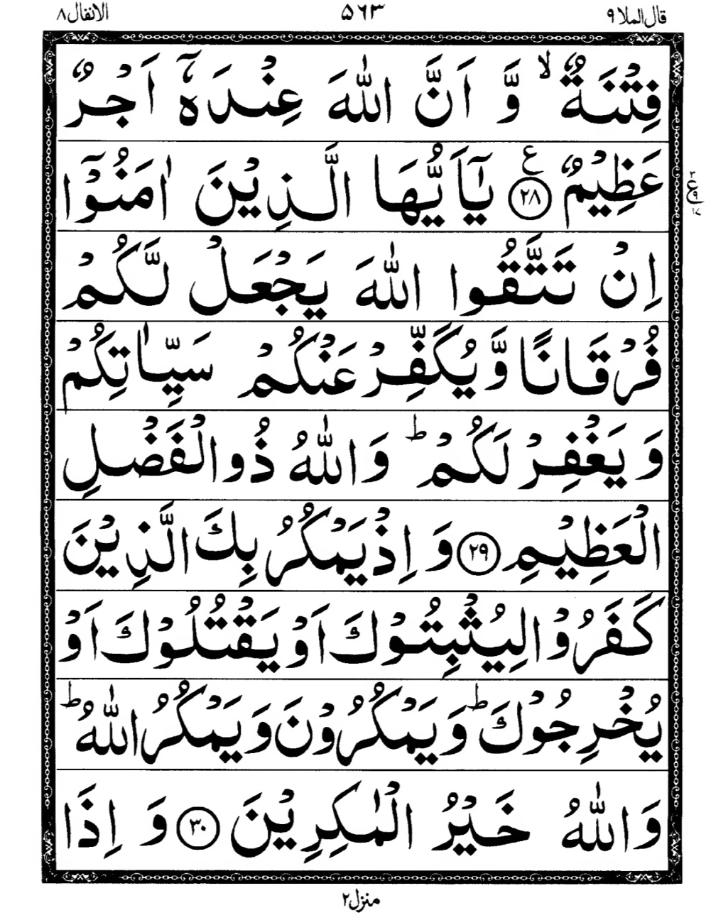 قال الملا ٩ ۵۶۳ الانفال ٨
فِتْنَةٌ ۙ وَّ اَنَّ اللّٰهَ عِنْدَهٗۤ اَجْرٌ
عَظِيْمٌ ﴿۲۸﴾ ع يٰۤاَيُّهَا الَّذِيْنَ اٰمَنُوْۤا
اِنْ تَتَّقُوا اللّٰهَ يَجْعَلْ لَّكُمْ
فُرْقَانًا وَّيُكَفِّرْ عَنْكُمْ سَيِّاٰتِكُمْ
وَيَغْفِرْ لَكُمْ ؕ وَاللّٰهُ ذُو الْفَضْلِ
الْعَظِيْمِ ﴿۲۹﴾ وَ اِذْ يَمْكُرُ بِكَ الَّذِيْنَ
كَفَرُوْا لِيُثْبِتُوْكَ اَوْ يَقْتُلُوْكَ اَوْ
يُخْرِجُوْكَ ؕ وَيَمْكُرُوْنَ وَيَمْكُرُ اللّٰهُ ؕ
وَاللّٰهُ خَيْرُ الْمٰكِرِيْنَ ﴿۳۰﴾ وَ اِذَا
منزل ۲